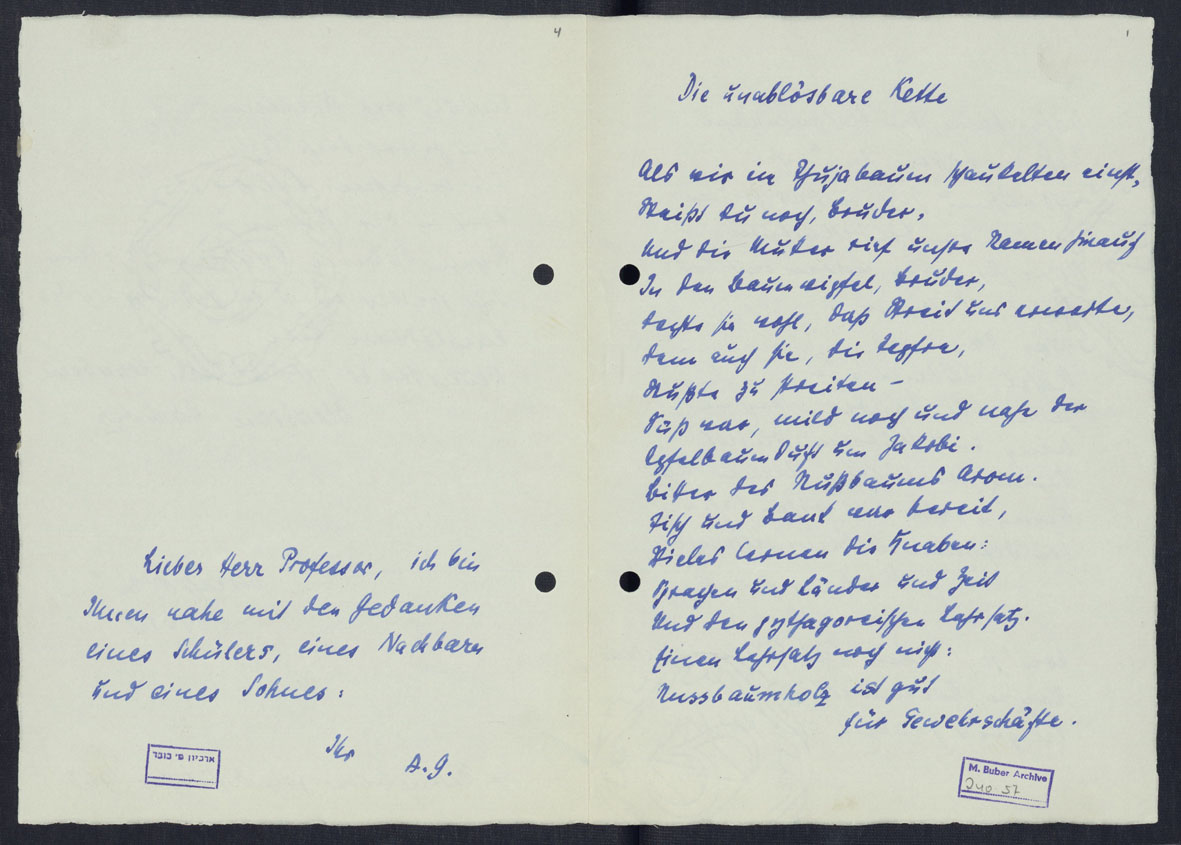 4
Lieber Herr Professor, ich bin
Ihnen nahe mit den Gedanken
eines Schülers, eines Nachbarn
und eines Sohnes:
Ihr A.G.
ארכיון מ׳ בובר
1
Die unablösbare Kette
Als wir im Thujabaum schaukelten einst,
Weißt du noch, Bruder,
Und die Mutter rief unsre Namen hinauf
In den Baumwipfel, Bruder,
Dachte sie wohl, daß Streit uns erwarte,
Denn auch sie, die Tapfre,
Wußte zu streiten –
Süß war, mild noch und nahe der
Apfelbaumduft um Jakobi.
Bitter des Nußbaums Arom.
Tisch und Bank war bereit,
Vieles lernen die Knaben:
Sprachen und Länder und Zeit
Und den pythagoreischen Lehrsatz.
Einen Lehrsatz noch nicht:
Nussbaumholz ist gut
für Gewehrschäfte.
M. Buber Archive
57